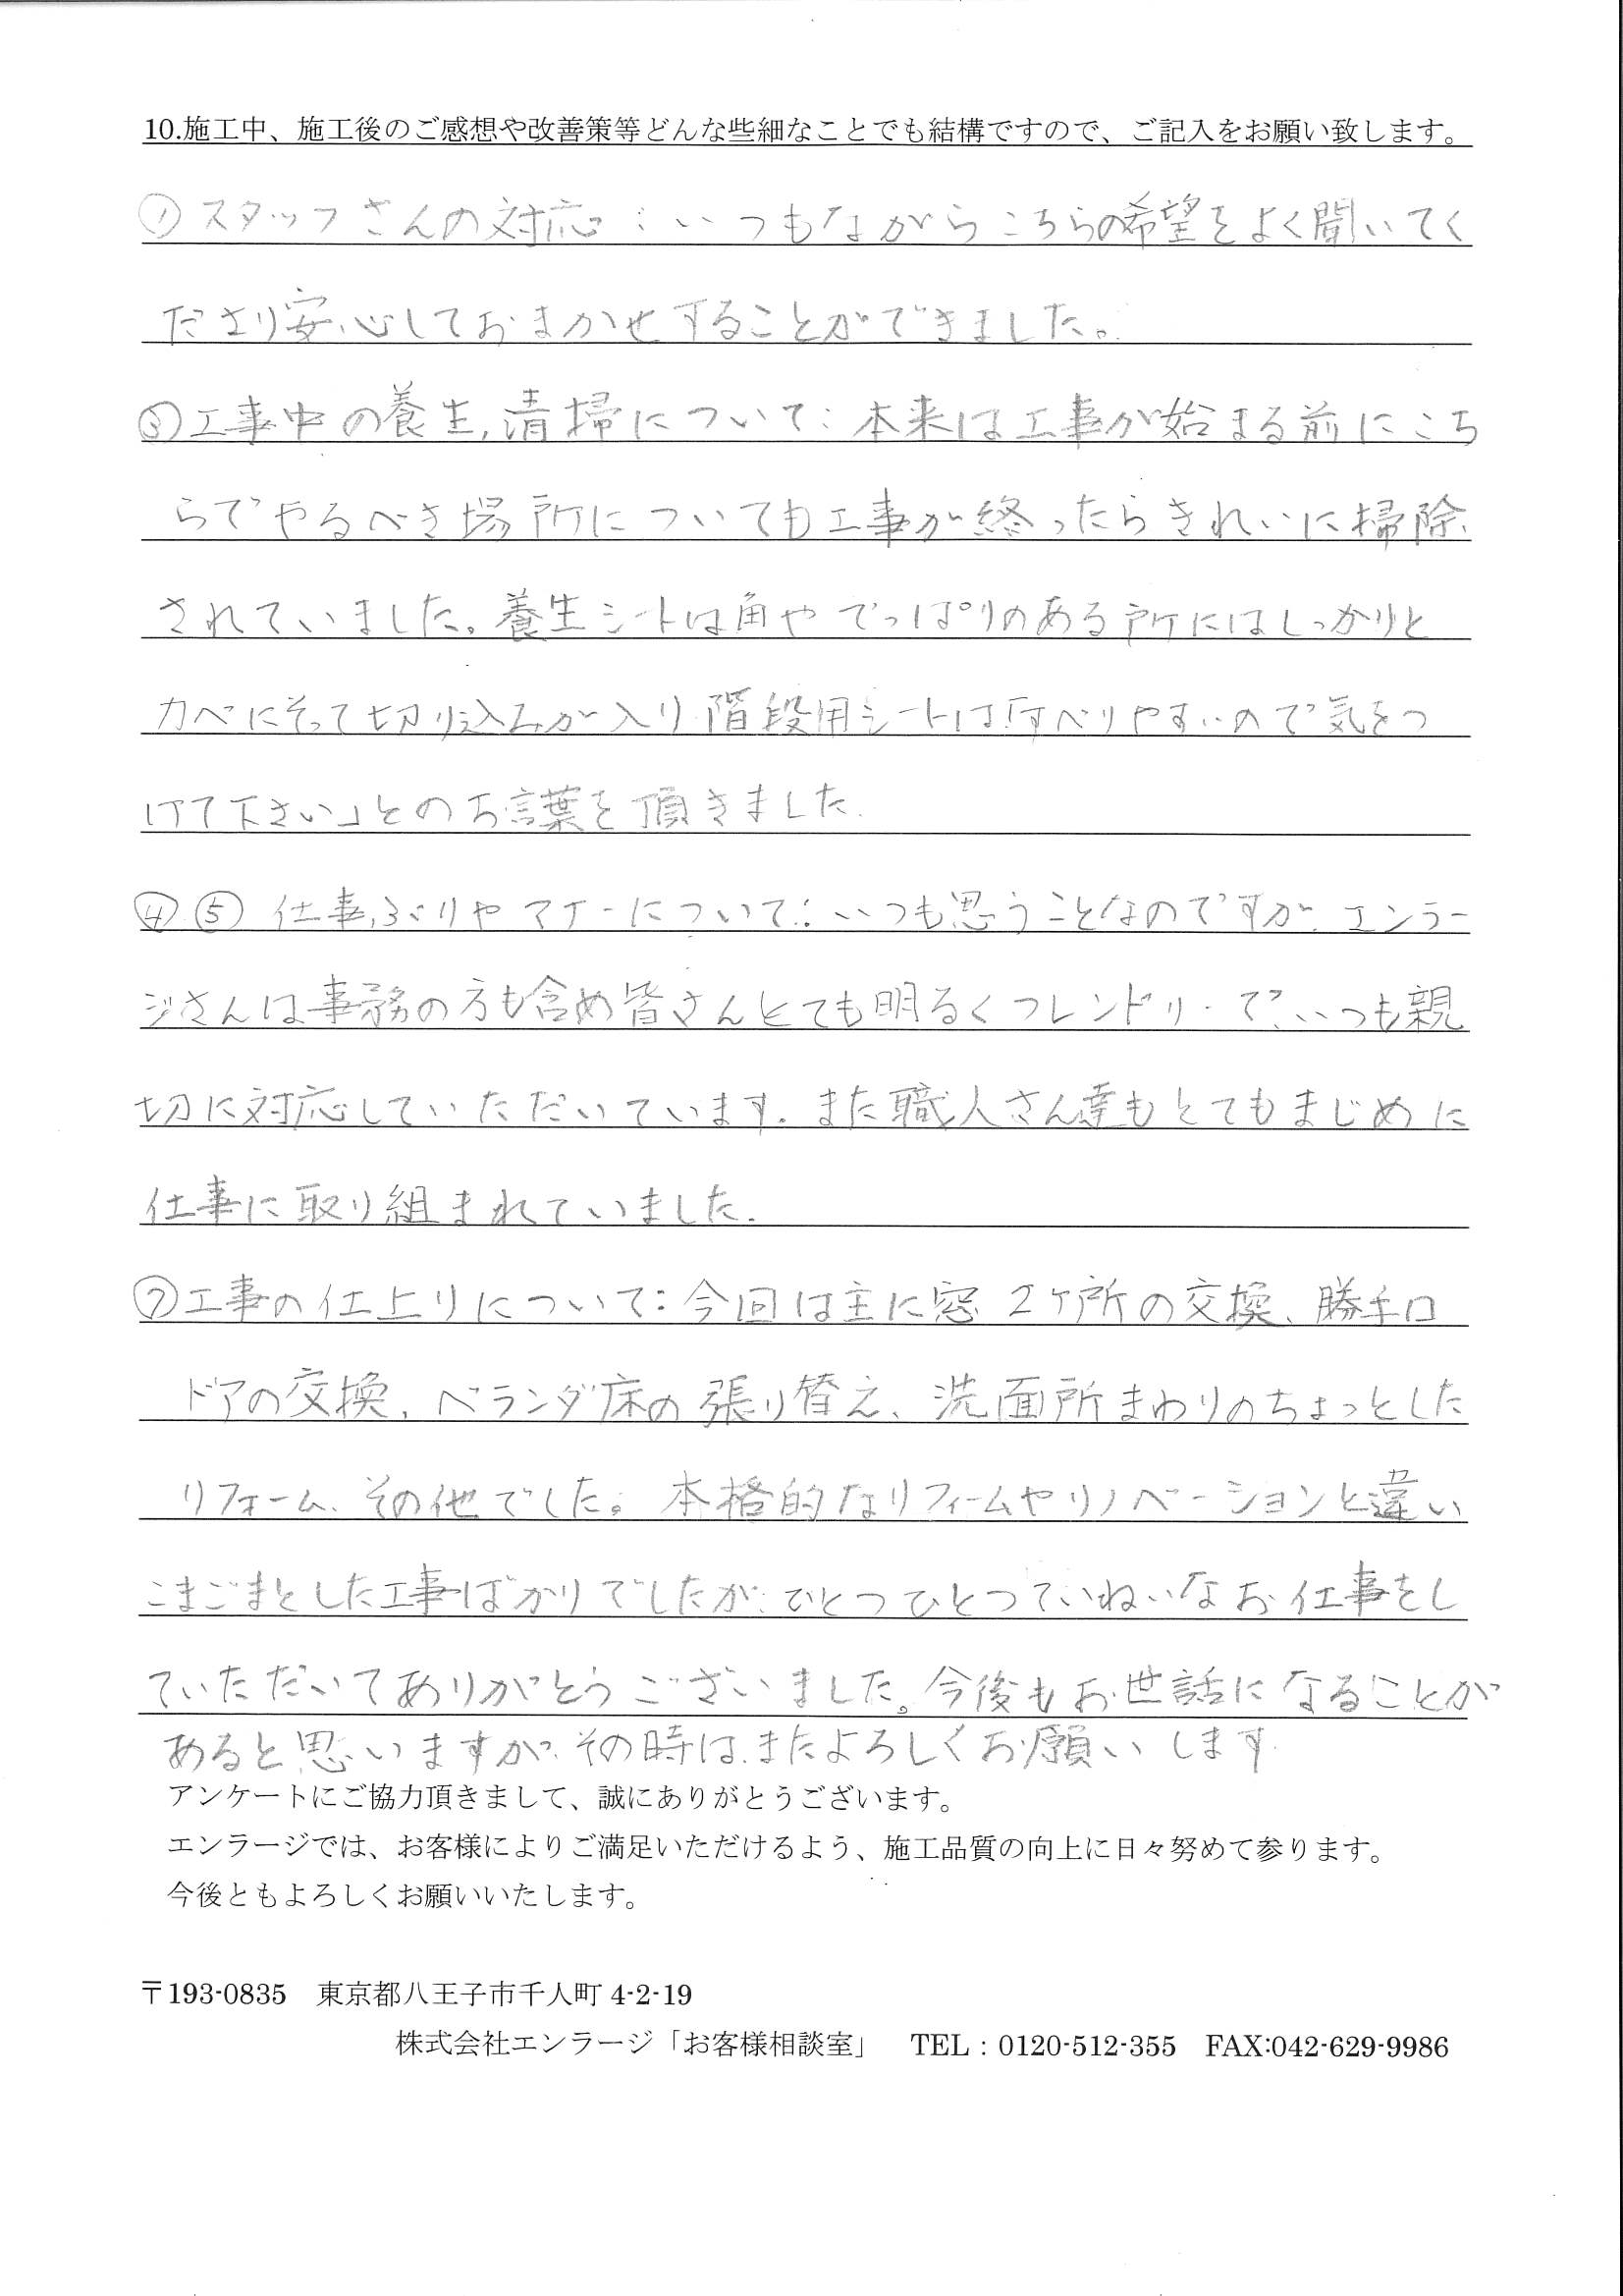 10.施工中、施工後のご感想や改善策等どんな些細なことでも結構ですので、ご記入をお願い致します。
①スタッフさんの対応：いつもながらこちらの希望をよく聞いてく
ださり安心しておまかせすることができました。
③工事中の養生,清掃について：本来は工事が始まる前にこち
らでやるべき場所についても工事が終ったらきれいに掃除
されていました。養生シートは角やでっぱりのある所にはしっかりと
カベにそって切り込みが入り階段用シートは「すべりやすいので気をつ
けて下さい」とのお言葉を頂きました.
④⑤仕事ぶりやマナーについて：いつも思うことなのですが、エンラー
ジさんは事務の方も含め皆さんとても明るくフレンドリーで、いつも親
切に対応していただいています. また職人さん達もとてもまじめに
仕事に取り組まれていました.
⑦工事の仕上りについて：今回は主に窓2ケ所の交換、勝手口
ドアの交換、ベランダ床の張り替え、洗面所まわりのちょっとした
リフォーム、その他でした。本格的なリフォームやリノベーションと違い
こまごまとした工事ばかりでしたが、ひとつひとつていねいなお仕事をし
ていただいてありがとうございました。今後もお世話になることが
あると思いますが、その時は、またよろしくお願いします.
アンケートにご協力頂きまして、誠にありがとうございます。
エンラージでは、お客様によりご満足いただけるよう、施工品質の向上に日々努めて参ります。
今後ともよろしくお願いいたします。
〒193-0835 東京都八王子市千人町 4-2-19
株式会社エンラージ「お客様相談室」 TEL：0120-512-355 FAX:042-629-9986